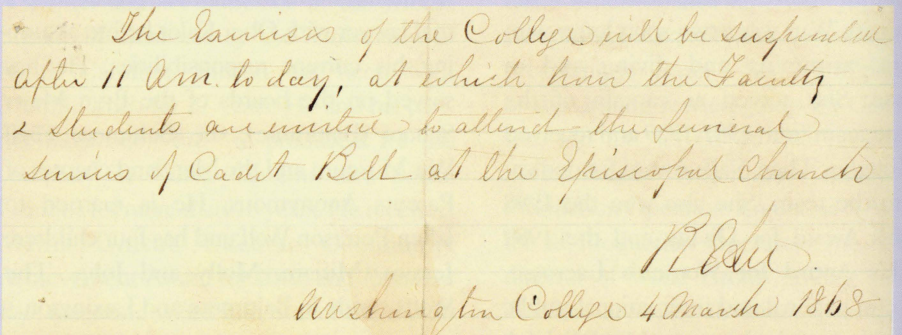 The Exercises of the College will be suspended
after 11 A.m. to day, at which hour the Faculty
& Students are invited to attend the funeral
services of Cadet Bell at the Episcopal Church
R E Lee
Washington College 4 March 1868